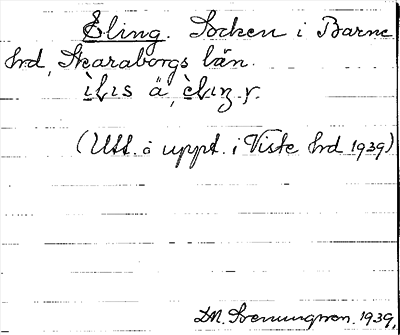 Eling. Socken i Barne
hrd, Skaraborgs län.
ä
(Utt. o uppt. i Viste hrd 1939)
D.N. Svenungsson. 1939.